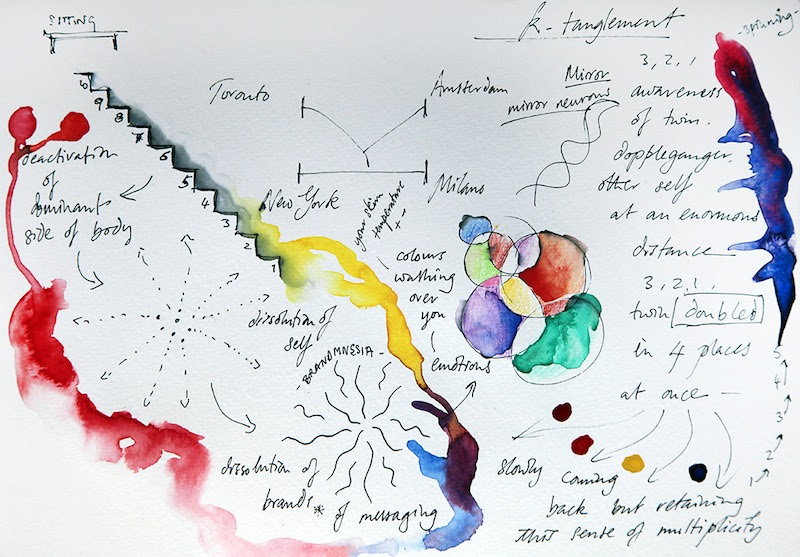 SITTING
k-tanglement
- spinning -
10
9
8
7
6
5
4
3
2
1
Toronto
Amsterdam
New York
Milano
Mirror
mirror neurons
deactivation
of
dominant
side of body
your skin
temperature
+ -
colours
washing
over
you
emotions
dissolution of
self
BRANDMNESIA -
dissolution of
brands*
of messaging
3, 2, 1
awareness
of twin.
doppleganger.
other self
at an enormous
distance
3, 2, 1,
twin doubled
in 4 places
at once -
5
4
3
2
1
slowly coming
back but retaining
this sense of multiplicity